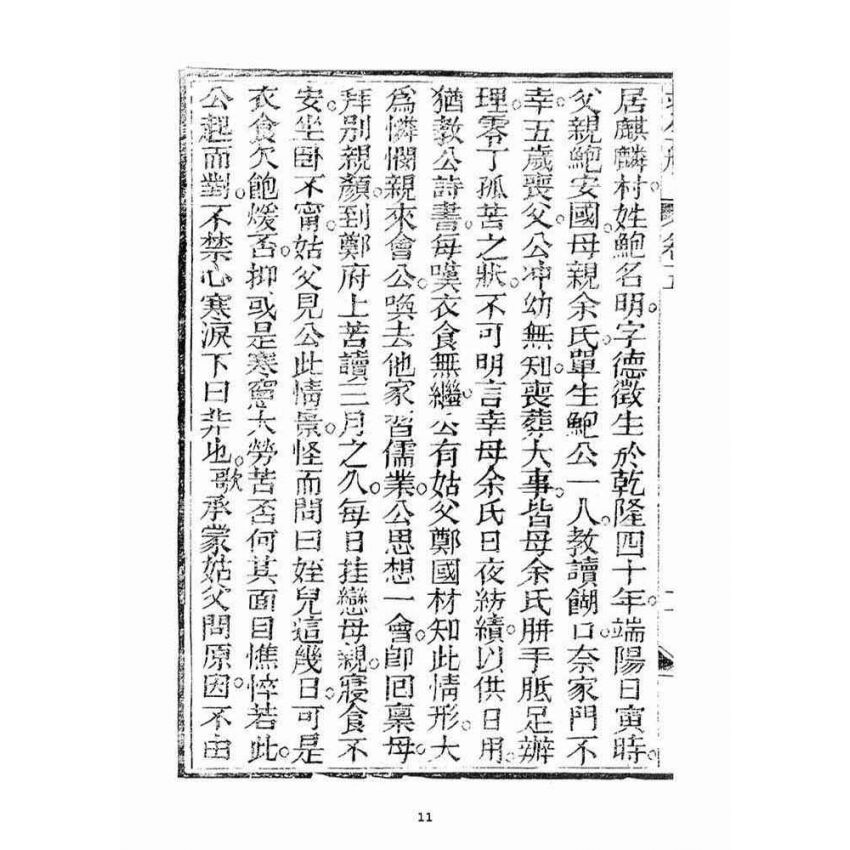 居麒麟村。姓鮑名明。字德徵生於乾隆四十年。端陽日寅時。
父親鮑安國。母親余氏。單生鮑公一人。教讀餬口。奈家門不
幸。五歲喪父。公冲幼無知。喪葬大事。皆母余氏胼手胝足辦
理。零丁孤苦之狀。不可明言幸母余氏日夜紡績。以供日用。
猶教公詩書。每嘆衣食無繼。公有姑父鄭國材知此情形。大
為憐憫。親來會公。喚去他家。習儒業。公思想一會。即回稟母。
拜別親顏。到鄭府上苦讀三月之久。每日挂戀母親。寢食不
安。坐卧不甯。姑父見公此情景。怪而問曰姪兒這幾日。可是
衣食欠飽煖否。抑或是寒窓太勞苦否何其面目憔悴若此。
公起而對。不禁心寒淚下曰非也。歌承蒙姑父問原因。不由
11